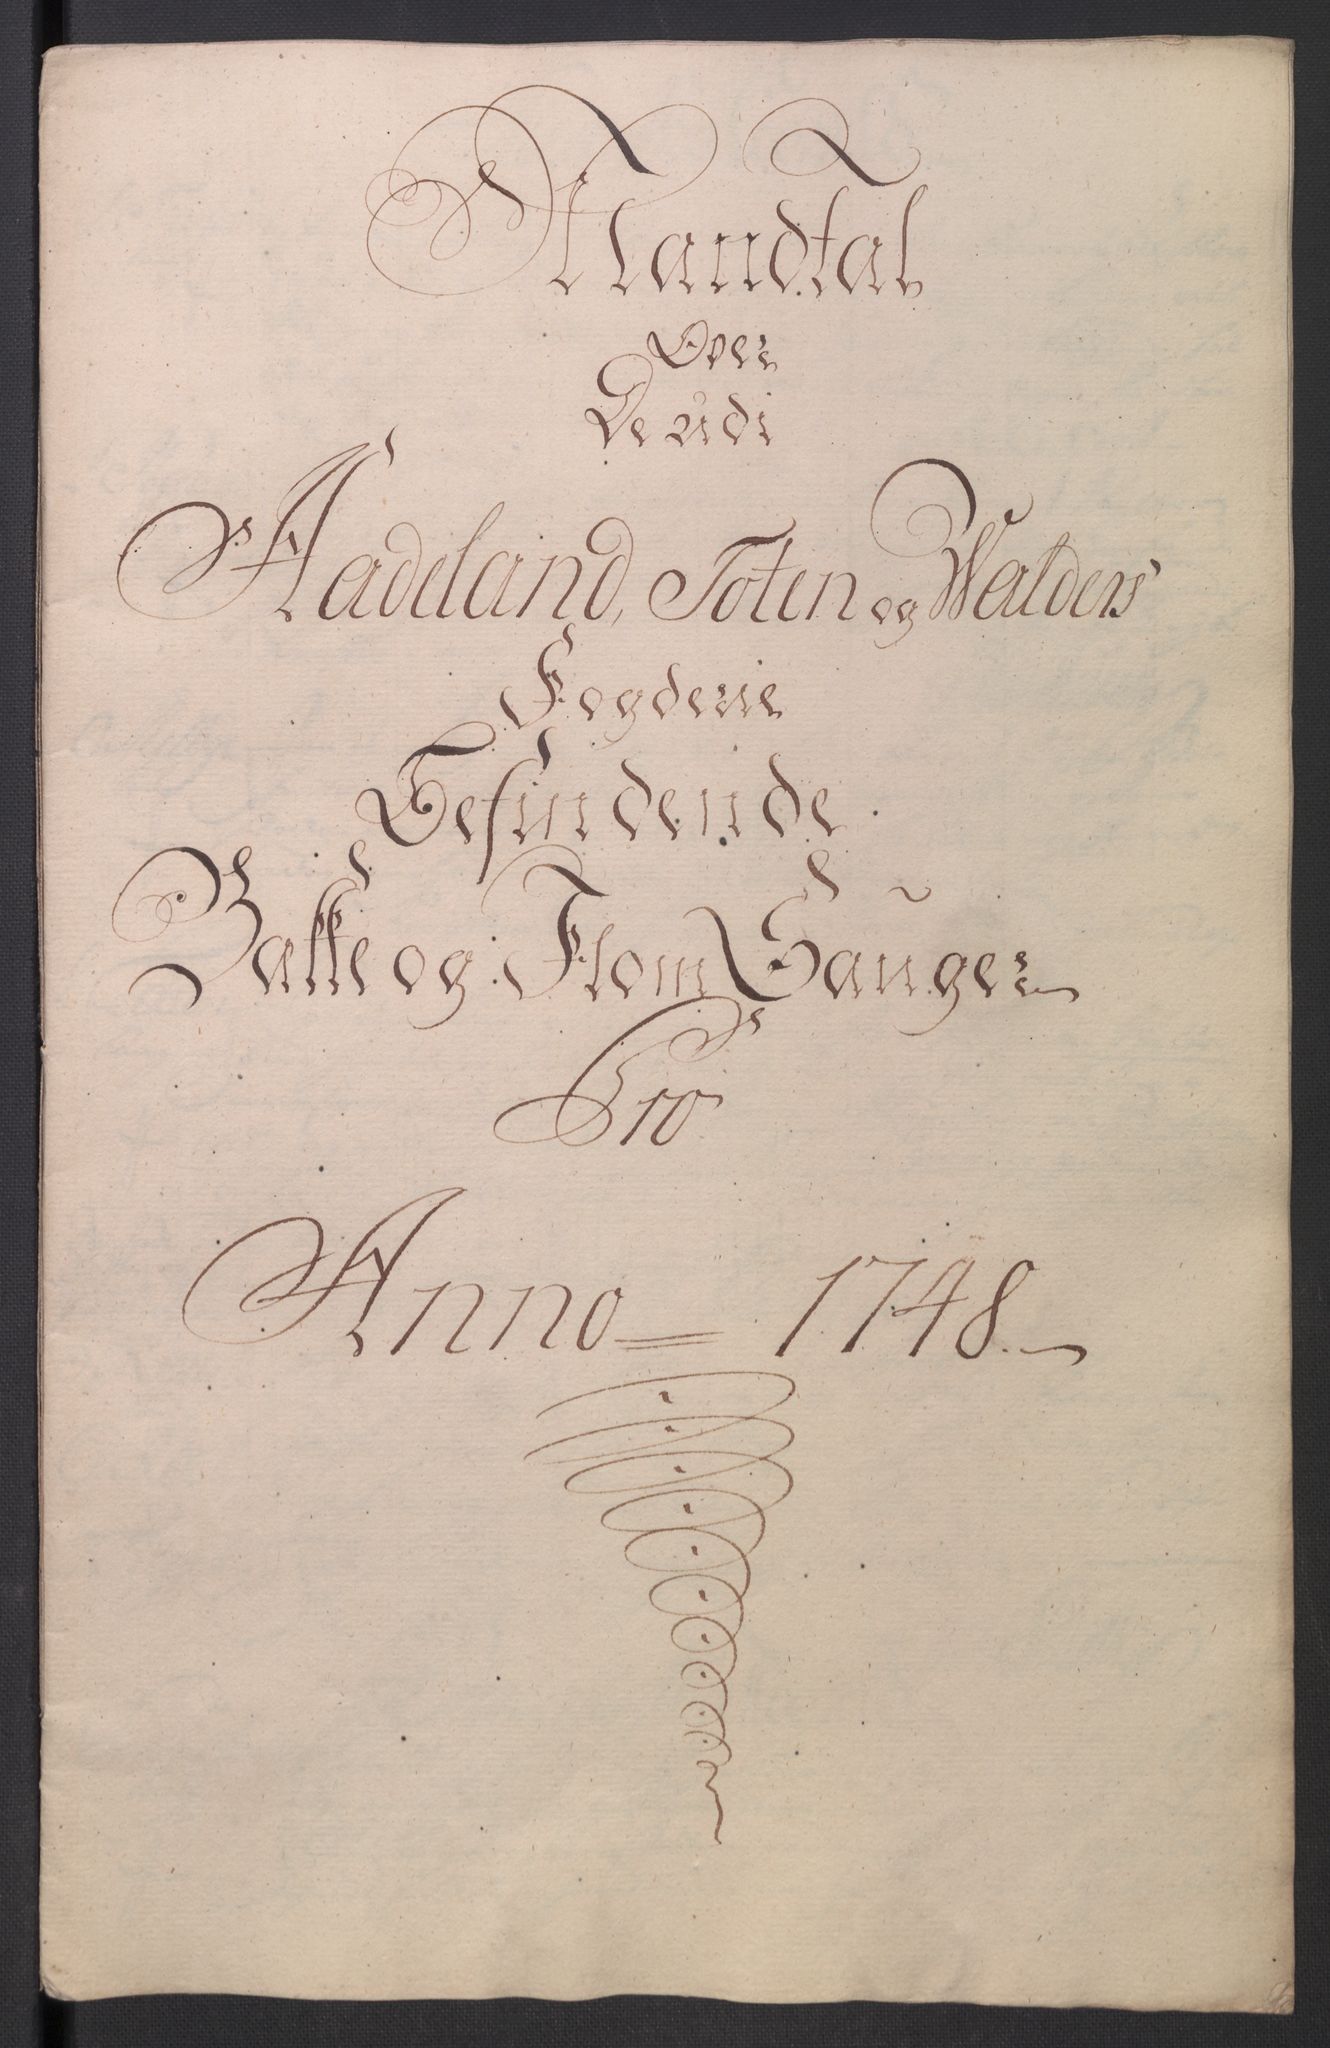 Mandtal
Over
De udi
Hadeland, Toten og Walders
Fogderie
Befindende
Bække og Flom Sauger
Pro
Anno = 1748.